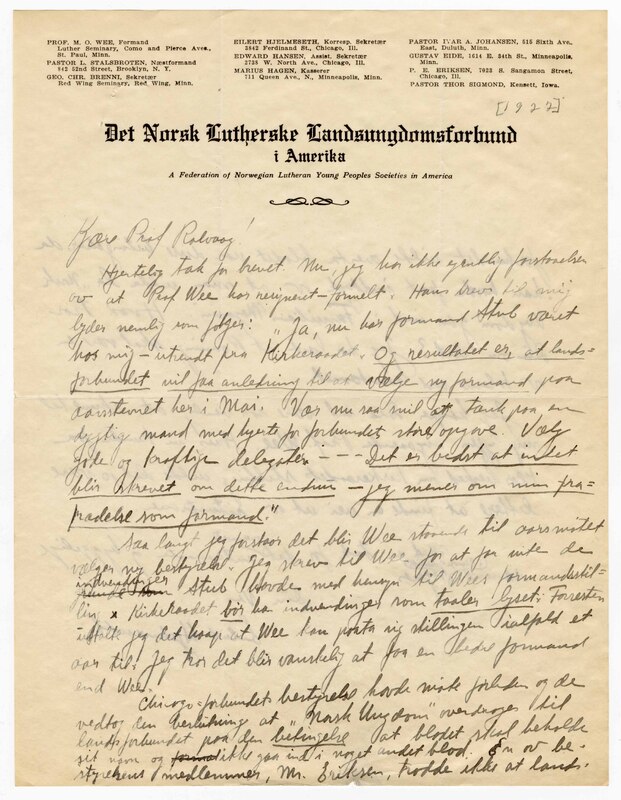 PROF. M. O. WEE, Formand
Luther Seminary, Como and Pierce Aves.,
St. Paul, Minn.
PASTOR L. STALSBROTEN, Næstformand
842 52nd Street, Brooklyn, N. Y.
GEO. CHR. BRENNI, Sekretær
Red Wing Seminary, Red Wing, Minn.
EILERT HJELMESETH, Korresp. Sekretær
3842 Ferdinand St., Chicago, Ill.
EDWARD HANSEN, Assist. Sekretær
2728 W. North Ave., Chicago, Ill.
MARIUS HAGEN, Kasserer
711 Queen Ave., N., Minneapolis, Minn.
PASTOR IVAR A. JOHANSEN, 515 Sixth Ave.,
East, Duluth, Minn.
GUSTAV EIDE, 1614 E. 34th St., Minneapolis,
Minn.
P. E. ERIKSEN, 7023 S. Sangamon Street,
Chicago, Ill.
PASTOR THOR SIGMOND, Kensett, Iowa.
[1922]
Det Norsk Lutherske Landsungdomsforbund
i Amerika
A Federation of Norwegian Lutheran Young Peoples Societies in America
Kjære Prof Rolvaag!
Hjertelig tak for brevet. Nu, jeg har ikke egentlig forstaaelsen
av at Prof Wee har resigneret - formelt. Hans brev til mig
lyder nemlig som følger: "Ja, nu har formand Stub været
hos mig - utsendt fra Kirkeraadet. Og resultatet er, at lands-
forbundet vil faa anledning til at vælge ny formand paa
aarsstevnet her i Mai. Vær nu saa snil at tænk paa en
dygtig mand med hjerte for forbundets store opgave. Vælg
gode og kraftige delegater - - - Det er bedst at intet
blir skrevet om dette endnu - jeg mener om min fra-
trædelse som formand."
Saa langt jeg forstaar det blir Wee staaende til aarsmøtet
vælger ny bestyrelse. Jeg skrev til Wee for at faa vite de
indvendinger Stub havde med hensyn til Wees formandsstil-
ling x Kirkeraadet bør ha indvendinger som taaler lyset. Forresten
utalte jeg det haap at Wee kan paata sig stillingen ialfald et
aar til. Jeg tror det blir vanskelig at faa en bedre formand
end Wee.
Chicago-forbundets bestyrelse havde møte forleden og de
vedtog den beslutning at "Norsk Ungdom" overdrages til
landsforbundet paa den betingelse at bladet skal beholde
sit navn og ikke gaa ind i noget andet blad. En av be-
styrelsens medlemmer, Mr. Eriksen, trodde ikke at lands-